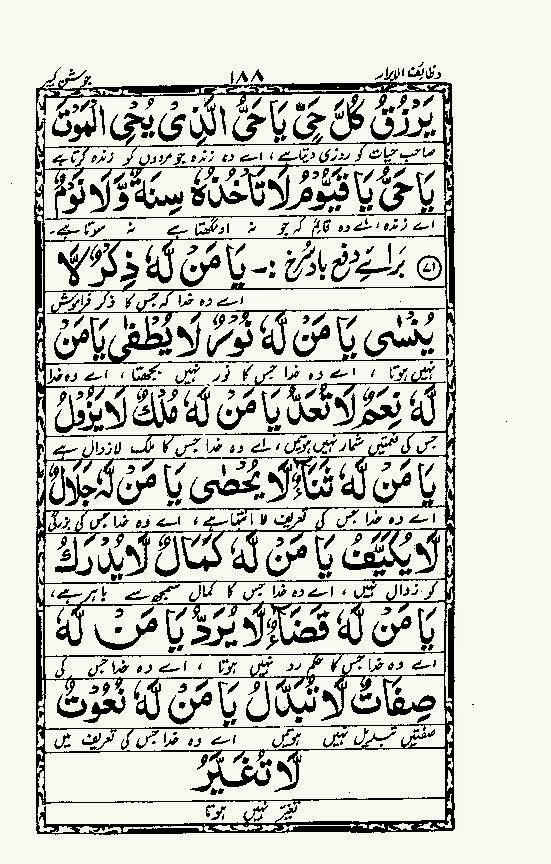 وظائف الابرار ۱۸۸ جوشن کبیر
يَرْزُقُ كُلَّ حَيٍّ يَا حَيُّ الَّذِىْ يُحْىِ الْمَوْتٰ
صاحب حیات کو روزی دیتا ہے، اے وہ زندہ جو مردوں کو زندہ کرتا ہے
يَا حَيُّ يَا قَيُّوْمُ لَا تَأْخُذُهٗ سِنَةٌ وَّلَا نَوْمٌ
اے زندہ، اے وہ قائم کہ جو نہ اونگھتا ہے نہ سوتا ہے۔
(۷۱) برائے دفع باد سرخ :- يَا مَنْ لَّهٗ ذِكْرٌ لَّا
اے وہ خدا کہ جس کا ذکر فراموش
يُنْسٰى يَا مَنْ لَّهٗ نُوْرٌ لَا يُطْفٰى يَا مَنْ
نہیں ہوتا ، اے وہ خدا جس کا نور نہیں بجھتا ، اے وہ خدا
لَّهٗ نِعَمٌ لَا تُعَدُّ يَا مَنْ لَّهٗ مُلْكٌ لَا يَزُوْلُ
جس کی نعمتیں شمار نہیں ہوتیں، اے وہ خدا جس کا ملک لازوال ہے
يَا مَنْ لَّهٗ ثَنَآءٌ لَّا يُحْصٰى يَا مَنْ لَّهٗ جَلَالٌ
اے وہ خدا جس کی تعریف لا انتہا ہے ، اے وہ خدا جس کی بزرگی
لَّا يُكَيَّفُ يَا مَنْ لَّهٗ كَمَالٌ لَّا يُدْرَكُ
کو زوال نہیں ، اے وہ خدا جس کا کمال سمجھ سے باہر ہے،
يَا مَنْ لَّهٗ قَضَآءٌ لَّا يُرَدُّ يَا مَنْ لَّهٗ
اے وہ خدا جس کا حکم رد نہیں ہوتا ، اے وہ خدا جس کی
صِفَاتٌ لَّا تُبَدَّلُ يَا مَنْ لَّهٗ نُعُوْتٌ
صفتیں تبدیل نہیں ہوتیں اے وہ خدا جس کی تعریف میں
لَّا تُغَيَّرُ
تغیر نہیں ہوتا